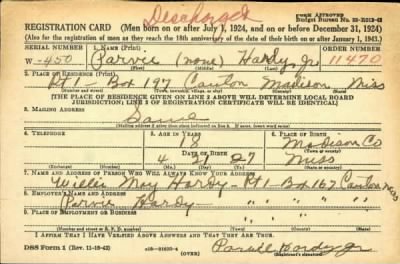 Discharged
FORM APPROVED
REGISTRATION CARD (Men born on or after July 1, 1924, and on or before December 31, 1924)
Budget Bureau No.
(Also for the registration of men as they reach the 18th anniversary of the date of their birth on or after January 1, 1943.)
SERIAL NUMBER 1. NAME (Print) ORDER NUMBER
W-450 Parvie (none) Hardy, Jr 11470
(First) (Middle) (Last)
2. PLACE OF RESIDENCE (Print)
Rt 1 Box 197 Canton Madison Miss
(Number and street) (Town, township, village, or city) (County) (State)
[THE PLACE OF RESIDENCE GIVEN ON LINE 2 ABOVE WILL DETERMINE LOCAL BOARD
JURISDICTION; LINE 2 OF REGISTRATION CERTIFICATE WILL BE IDENTICAL]
3. MAILING ADDRESS
Same
4. TELEPHONE 5. AGE IN YEARS 6. PLACE OF BIRTH
18 Madison Co
(Town or county)
DATE OF BIRTH
4 21 27 Miss
(Exchange) (Number) (Mo.) (Day) (Yr.) (State or country)
7. NAME AND ADDRESS OF PERSON WHO WILL ALWAYS KNOW YOUR ADDRESS
Willie May Hardy - Rt 1 - Box 167 Canton Miss
8. EMPLOYER'S NAME AND ADDRESS
Parvie Hardy - " " " "
9. PLACE OF EMPLOYMENT OR BUSINESS
" " " "
(Number and street or R. F. D. number) (Town) (County) (State)
I AFFIRM THAT I HAVE VERIFIED ABOVE ANSWERS AND THAT THEY ARE TRUE.
DSS Form 1 (Rev. 11-16-42) (OVER)
(Registrant's signature)